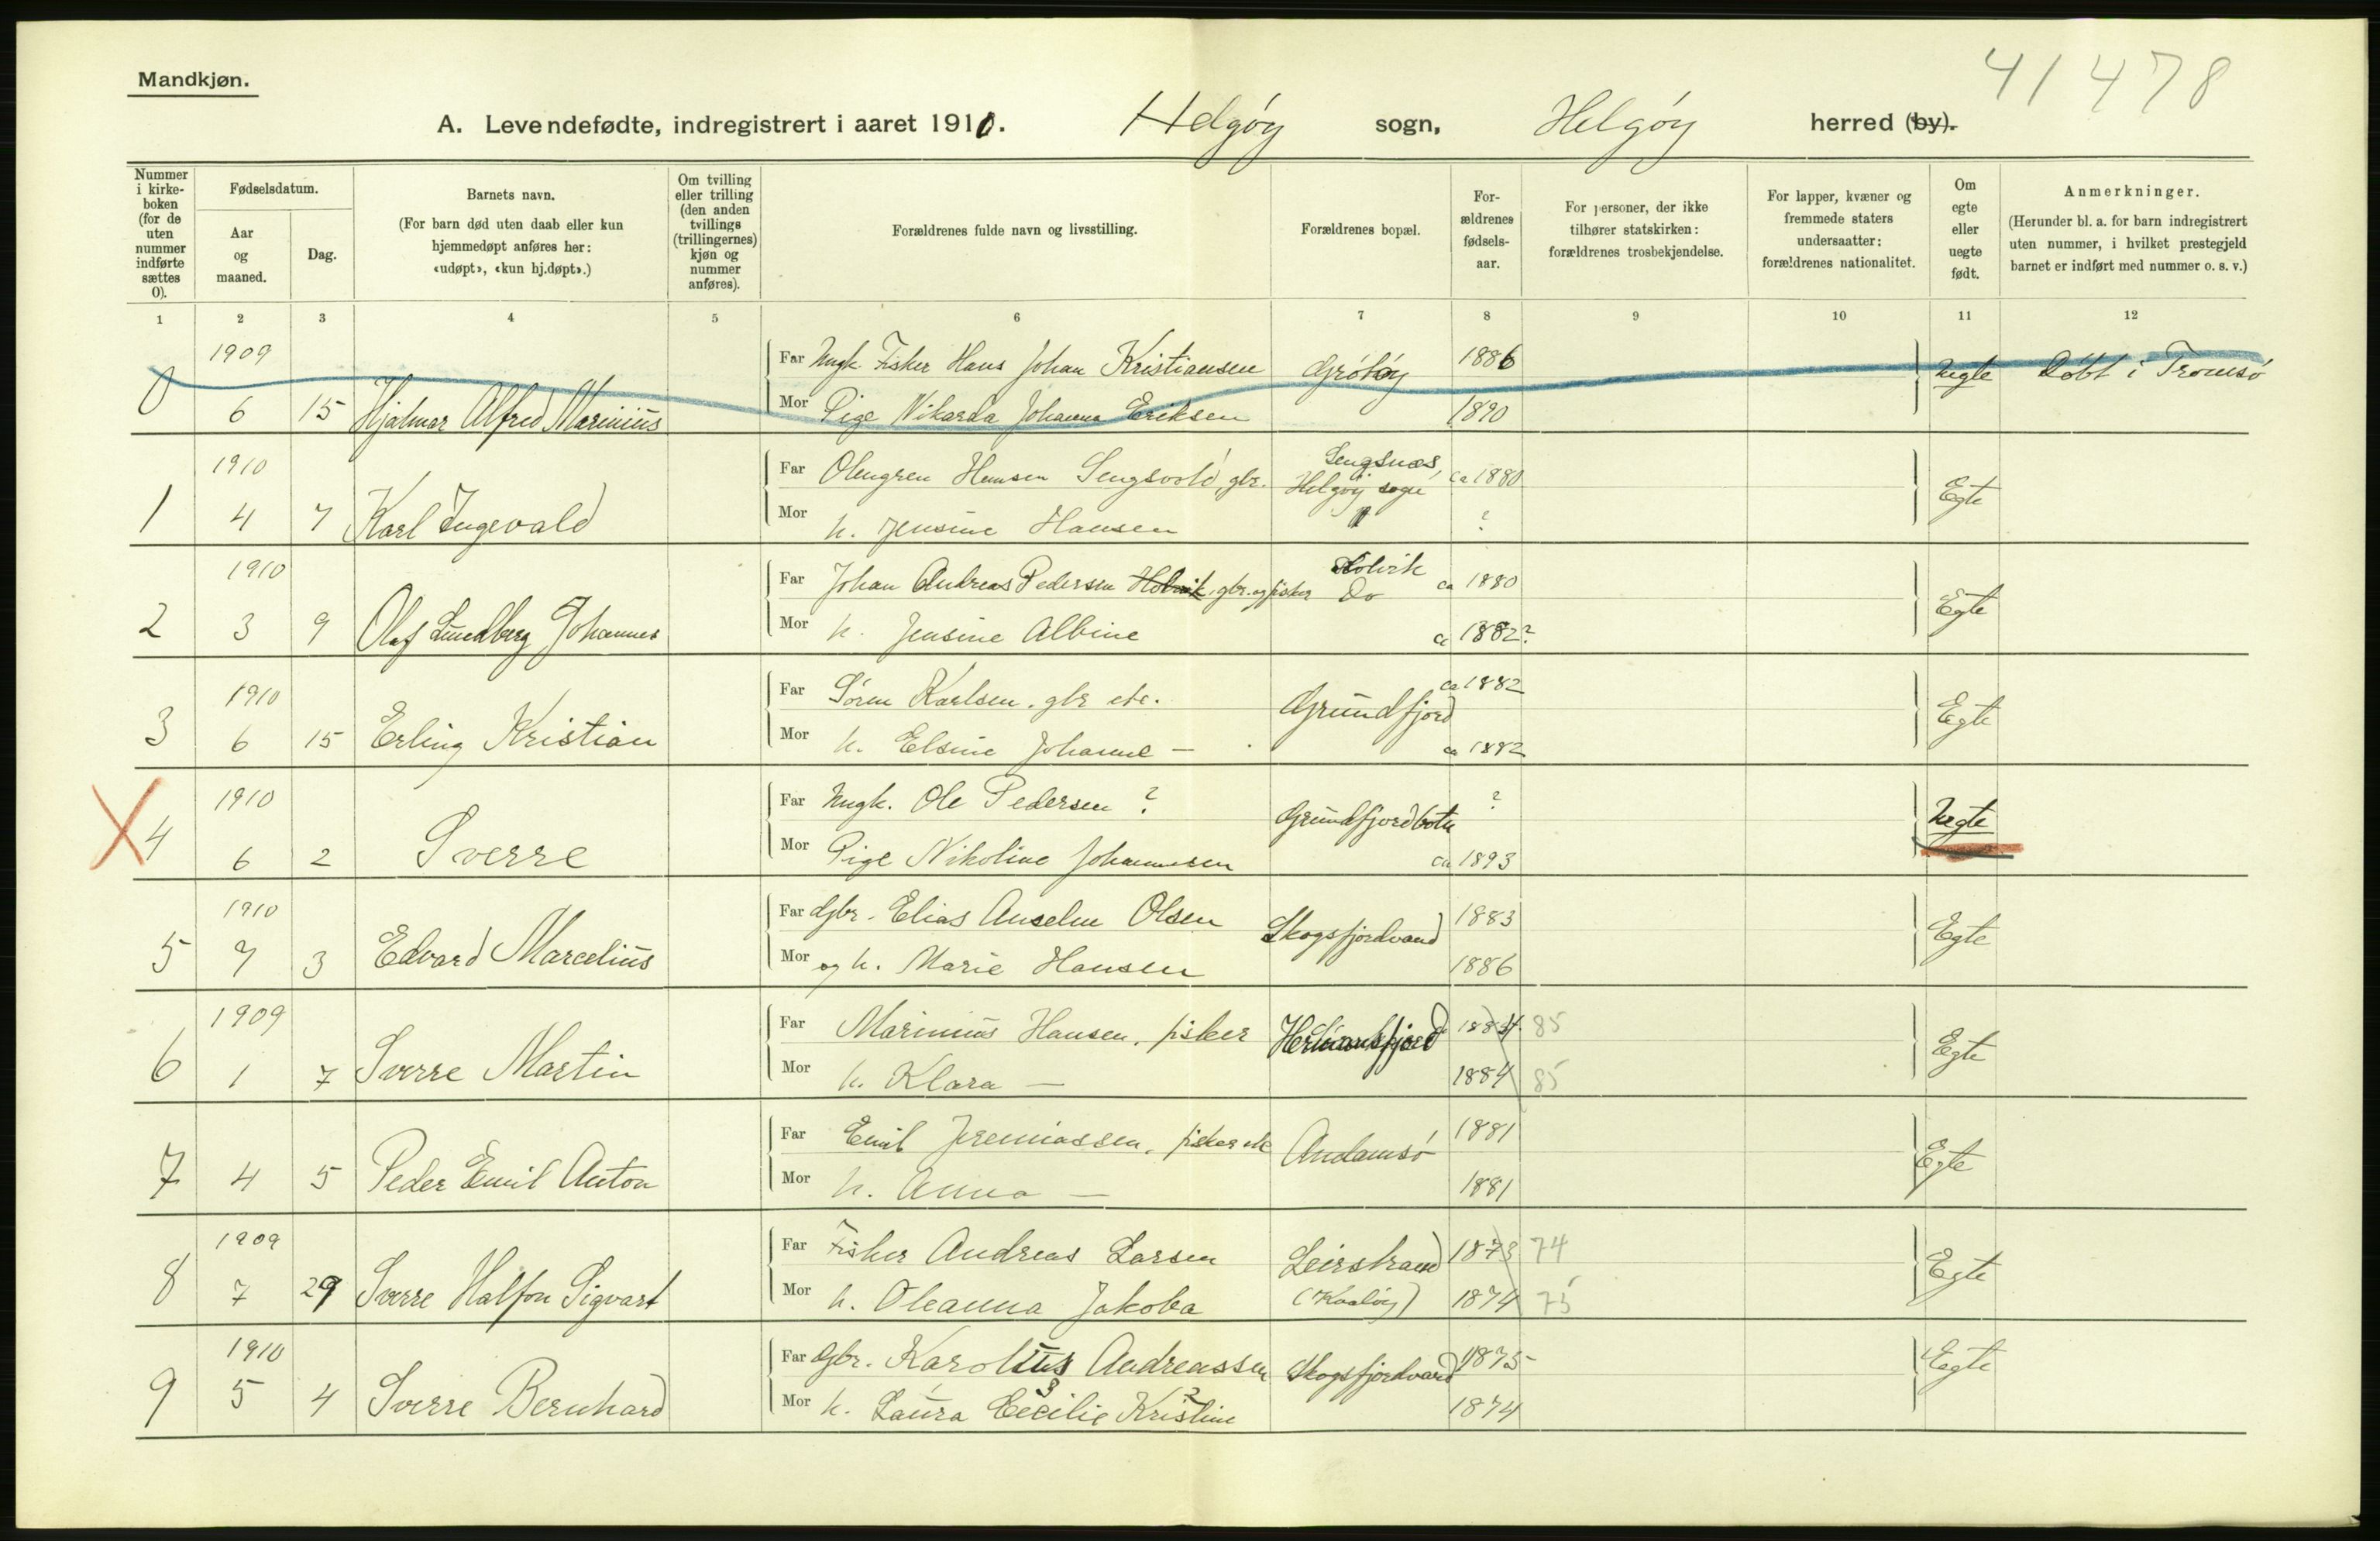 Mandkjøn.
41478
A. Levendefødte, indregistrert i aaret 1910. Helgøy sogn, Helgøy herred (by).
Nummer i kirkeboken (for de uten nummer indførte sættes 0).
Fødselsdatum.
Aar og maaned.
Dag.
Barnets navn.
(For barn død uten daab eller kun hjemmedøpt anføres her: «udøpt», «kun hj.døpt».)
Om tvilling eller trilling (den anden tvillings (trillingernes) kjøn og nummer anføres).
Forældrenes fulde navn og livsstilling.
Forældrenes bopæl.
Forældrenes fødselsaar.
For personer, der ikke tilhører statskirken: forældrenes trosbekjendelse.
For lapper, kvæner og fremmede staters undersaatter: forældrenes nationalitet.
Om egte eller uegte født.
Anmerkninger.
(Herunder bl. a. for barn indregistrert uten nummer, i hvilket prestegjeld barnet er indført med nummer o. s. v.)
1 2 3 4 5 6 7 8 9 10 11 12
1909 Far Ungk. Fisker Hans Johan Kristiansen Grötöy 1886 Uegte Döbt i Tromsö
0 6 15 Hjalmar Alfred Marinius Mor Pige Nikarda Johanna Eriksen 1890
1910 Far Olengren Hansen Sengsvold, gbr. Sengsnæs, Helgöy sogn ca 1880 Egte
1 4 7 Karl Ingevald Mor h. Jensine Hansen " ?
1910 Far Johan Andreas Pedersen Holvik, gbr. og fisker Holvik Do ca 1880 Egte
2 3 9 Olaf Lundberg Johannes Mor h. Jensine Albine ca 1882?
1910 Far Sören Karlsen, gbr etc. Grundfjord ca 1882 Egte
3 6 15 Erling Kristian Mor h. Elsine Johanne — ca 1882
1910 Far Ungk. Ole Pedersen ? Grundfjordbotn ? Uegte
4 6 2 Sverre Mor Pige Nikoline Johannesen ca 1893
1910 Far Gbr. Elias Anselm Olsen Skogsfjordvand 1883 Egte
5 7 3 Edvard Marcelius Mor og h. Marie Hansen 1886
1909 Far Marinius Hansen, fisker 1884 85 Egte
6 1 7 Sverre Martin Mor h. Klara — 1884 85
Far Emil Jeremiassen, fisker etc Andamsö 1881 Egte
7 4 5 Peder Emil Anton Mor h. Anna — 1881
1909 Far Fisker Andreas Larsen Leirstrand 1873 74 Egte
8 7 29 Sverre Halfon Sigvart Mor h. Oleanna Jakoba (Karlöy) 1874 75
1910 Far Gbr. Karolius Andreassen Skogsfjordvand 1875 Egte
9 5 4 Sverre Bernhard Mor h. Laura Cecilie Kristine 1874